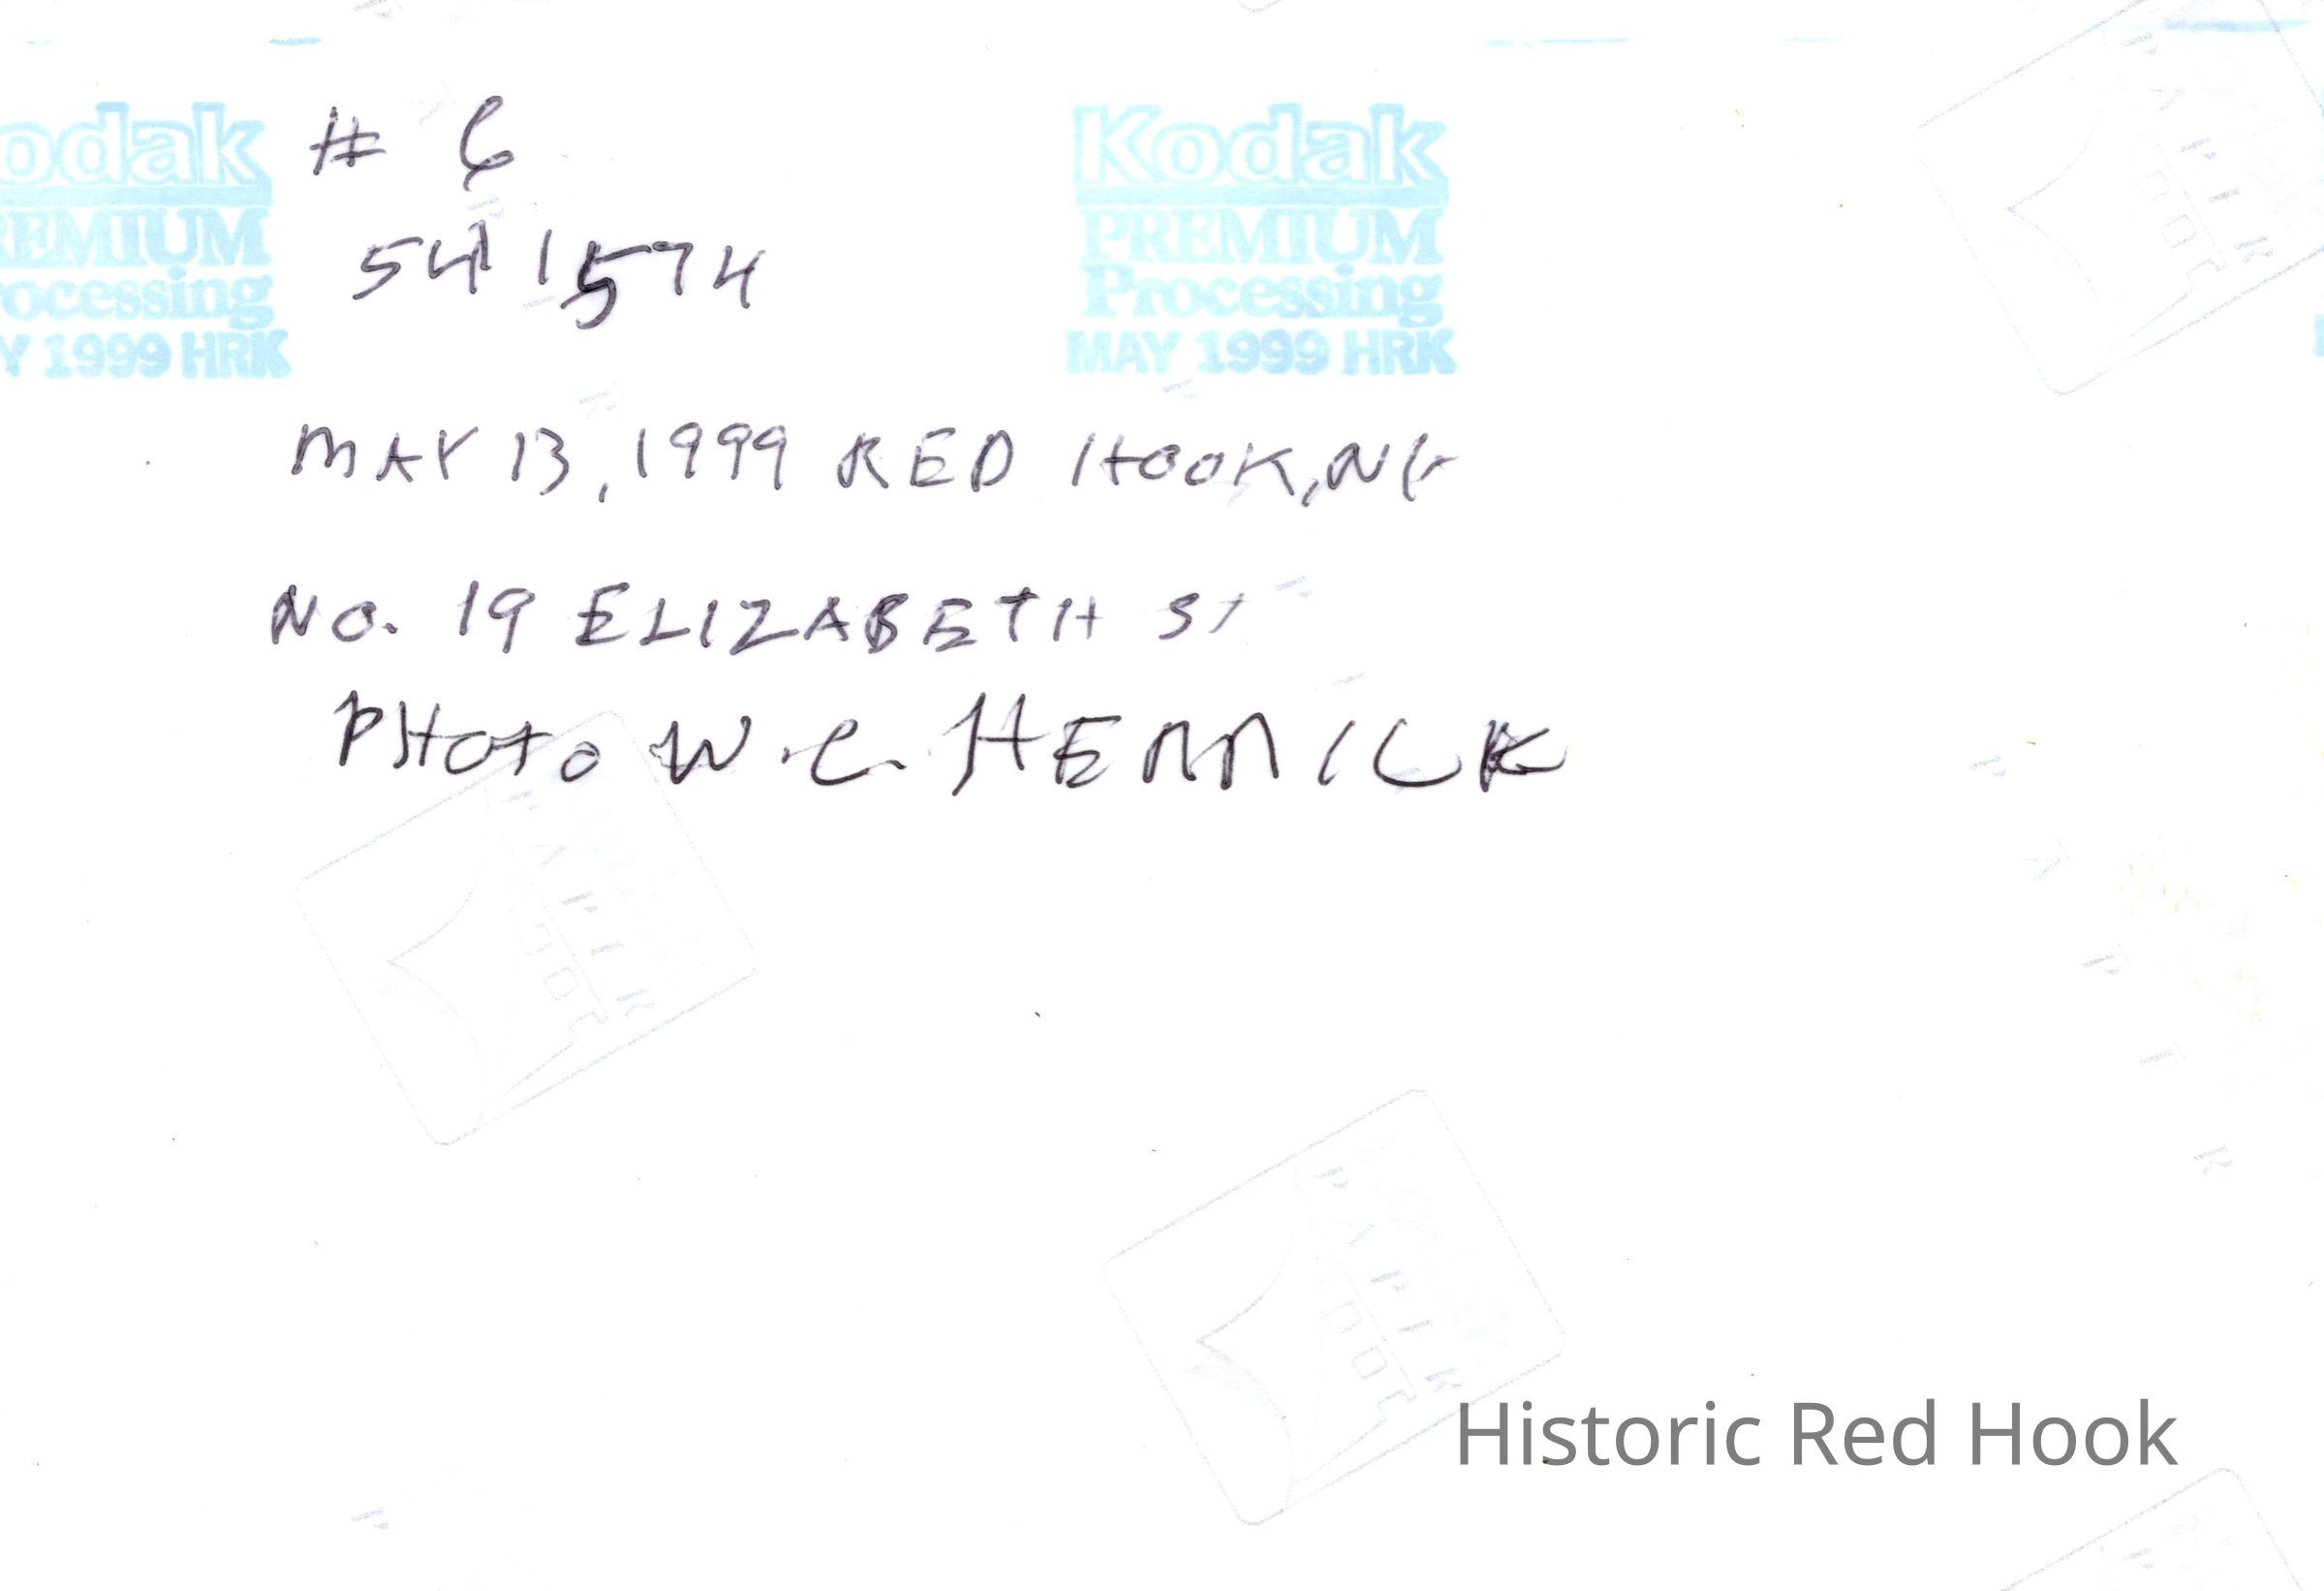 # 6
541574
MAY 13, 1999 RED HOOK, NY
NO. 19 ELIZABETH ST
PHOTO W.C. HERRICK
odak
REMIUM
ocessing
Y 1999 HRK
Kodak
PREMIUM
Processing
MAY 1999 HRK
Historic Red Hook